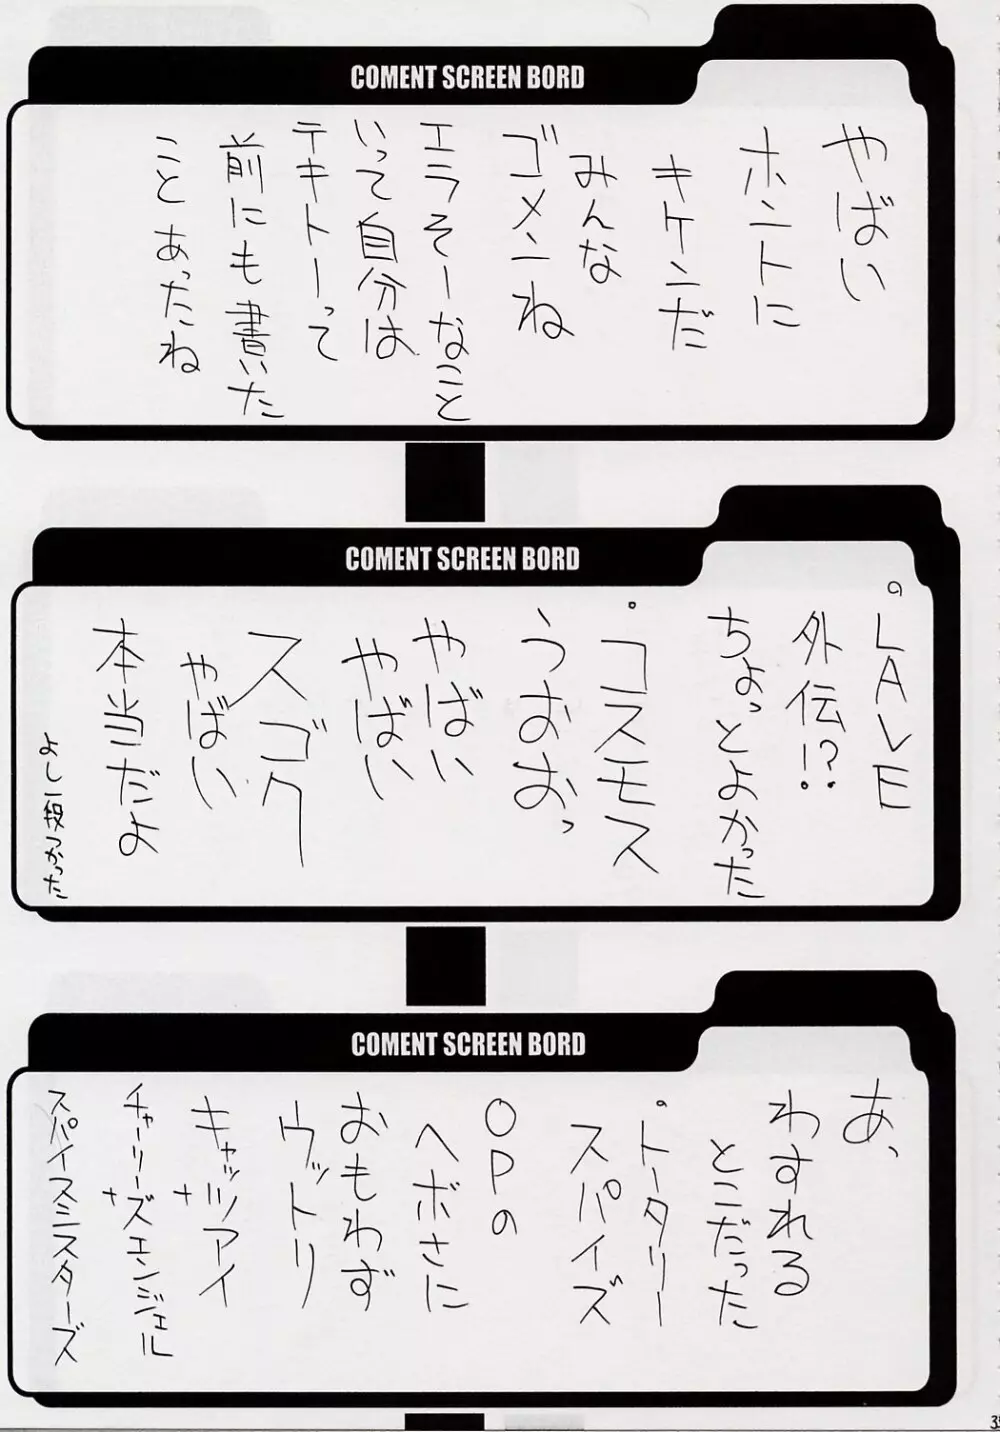 COMENT SCREEN BORD
やばい
ホントに
キケンだ
みんな
ゴメンね
エラそーなこと
いって自分は
テキトーって
前にも書いた
こと あったね
COMENT SCREEN BORD
LAVE
外伝!?
ちょっとよかった
・コスモス
うおおっ
やばい
やばい
スゴク
やばい
本当だよ
よし一段つかった
COMENT SCREEN BORD
あ、
わすれる
とこだった
・トータリー
スパイズ
OPの
ヘボさに
おもわず
ウットリ
キャッツアイ
+
チャーリーズエンジェル
+
スパイスミスターズ